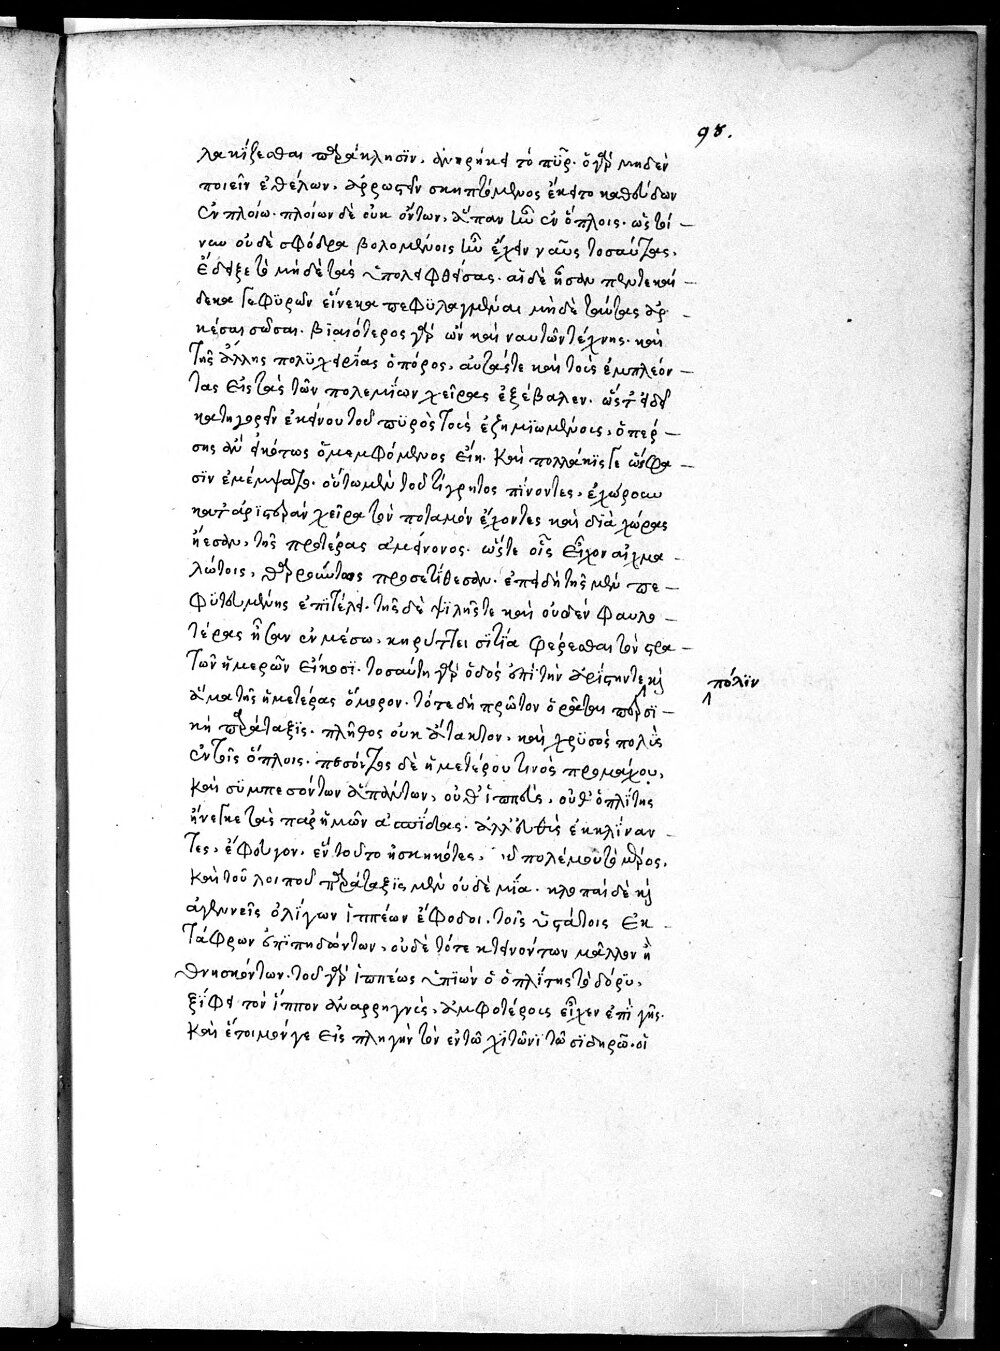 98.
λακίζεσθαι παράκλησιν, ἀνηρήκει τὸ πῦρ. ὁ γὰρ μηδὲν
ποιεῖν ἐθέλων, ἀρρωστεῖν σκηπτόμενος ἔκειτο καθεύδων
ἐν πλοίω. πλοίων δὲ οὐκ ὄντων, ἅπαν ἦν ἐν ὅπλοις. ὡς τοί-
νυν οὐδὲ σφόδρα βουλομένοις ἦν ἔχειν ναῦς τοσαύτας,
ἔδειξε τὸ μὴ δὲ τὰς ὑπολειφθείσας. αἳ δὲ ἦσαν πεντεκαί-
δεκα γεφυρῶν εἵνεκα πεφυλαγμέναι μὴ δὲ ταύτας ἀρ-
κέσαι σῶσαι. βιαιότερος γὰρ ὢν καὶ ναυτῶν τέχνης. καὶ
τῆς ἄλλης πολυχειρίας ὁ πόρος, αὐτάς τε καὶ τοὺς ἐμπλέον-
τας εἰς τὰς τῶν πολεμίων χεῖρας ἐξέβαλεν. ὥστ' εἰ δεῖ
κατηγορεῖν ἐκείνου τοῦ πυρὸς τοὺς ἐζημιωμένους, ὁ πέρ-
σης ἂν εἰκότως ὁ μεμφόμενος εἴη. καὶ πολλάκις γε ὥς φα-
σιν ἐμέμψατο. οὕτω μὲν τοῦ τίγρητος πίνοντες, ἐχώρουν
κατ' ἀριστερὰν χεῖρα τὸν ποταμὸν ἔχοντες καὶ διὰ χώρας
ἤεσαν, τῆς προτέρας ἀμείνονος. ὥστε οἷς εἶχον αἰχμα-
λώτοις, θαρροῦντες προσετίθεσαν. ἐπειδὴ τῆς μὲν πε-
φυτευμένης ἐπὶ τέλει. τῆς δὲ ψιλῆς τε καὶ οὐδὲν φαυλο-
τέρας ἦσαν ἐν μέσω, κηρύττει σιτία φέρεσθαι τὸν στρα-
τῶν ἡμερῶν εἴκοσι. τοσαύτη γὰρ ὁδὸς ἐπὶ τὴν ἀρίστην τε καὶ πόλιν
ἅμα τῆς ἡμετέρας ὅμορον. τότε δὴ πρῶτον ὁρᾶται περσι-
κὴ παράταξις. πλῆθος οὐκ ἄτακτον, καὶ χρυσὸς πολὺς
ἐν τοῖς ὅπλοις. πεσόντος δὲ ἡμετέρου τινὸς προμάχου,
καὶ συμπεσόντων ἁπάντων, οὔθ' ἱππεὺς, οὔθ' ὁπλίτης
ἤνεγκε τὰς παρ' ἡμῶν ἀσπίδας. ἀλλ' εὐθὺς ἐκκλίναν-
τες, ἔφευγον. ἓν τοῦτο ἠσκηκότες, τοῦ πολέμου τὸ μέρος.
καὶ τοῦ λοιποῦ παράταξις μὲν οὐδὲ μία. κλοπαὶ δὲ καὶ
ἀγεννεῖς ὀλίγων ἱππέων ἔφοδοι. τοῖς ὑστάτοις ἐκ
τάφρων ἐπιπηδώντων, οὐδὲ τότε κτεινόντων μᾶλλον ἢ
θνησκόντων. τοῦ γὰρ ἱππέως ὑπιὼν ὁ ὁπλίτης τὸ δόρυ,
ξίφει τὸν ἵππον ἀναρρηγνὺς, ἀμφοτέρους εἶχεν ἐπὶ γῆς.
καὶ ἕτοιμόν γε εἰς πληγὴν τὸν ἐν τῷ χιτῶνι τῷ σιδηρῷ. οἱ